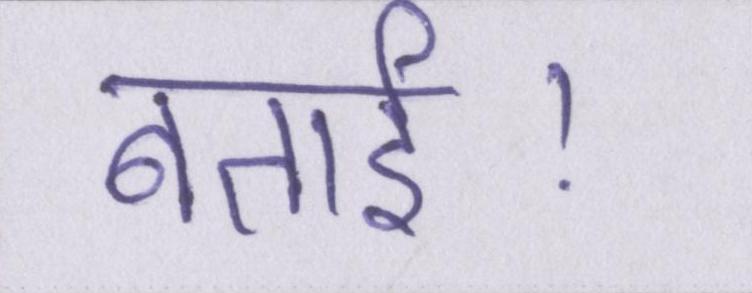 बताई!